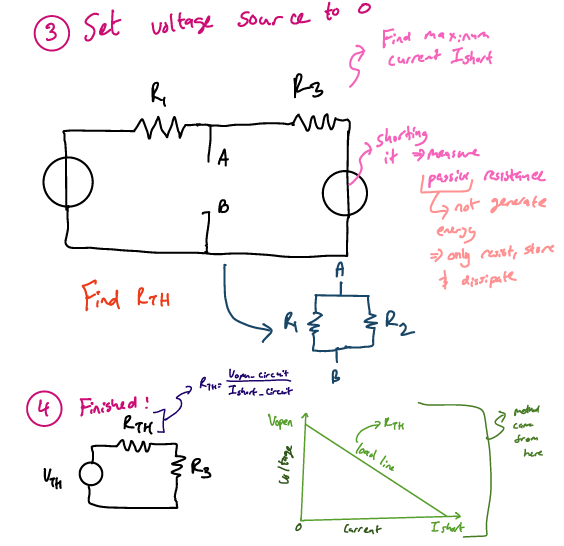 ③ Set voltage source to 0
Find maximum
current Ishort
R1
R3
shorting
it ⇒ measure
passive, resistance
not generate
energy
⇒ only resist, store
& dissipate
A
B
Find RTH
A
R1
R2
B
④ Finished!
RTH = Vopen-circuit / Ishort-circuit
RTH
VTH
R3
Vopen
RTH
load line
Voltage
0
Current
Ishort
method
came
from
here